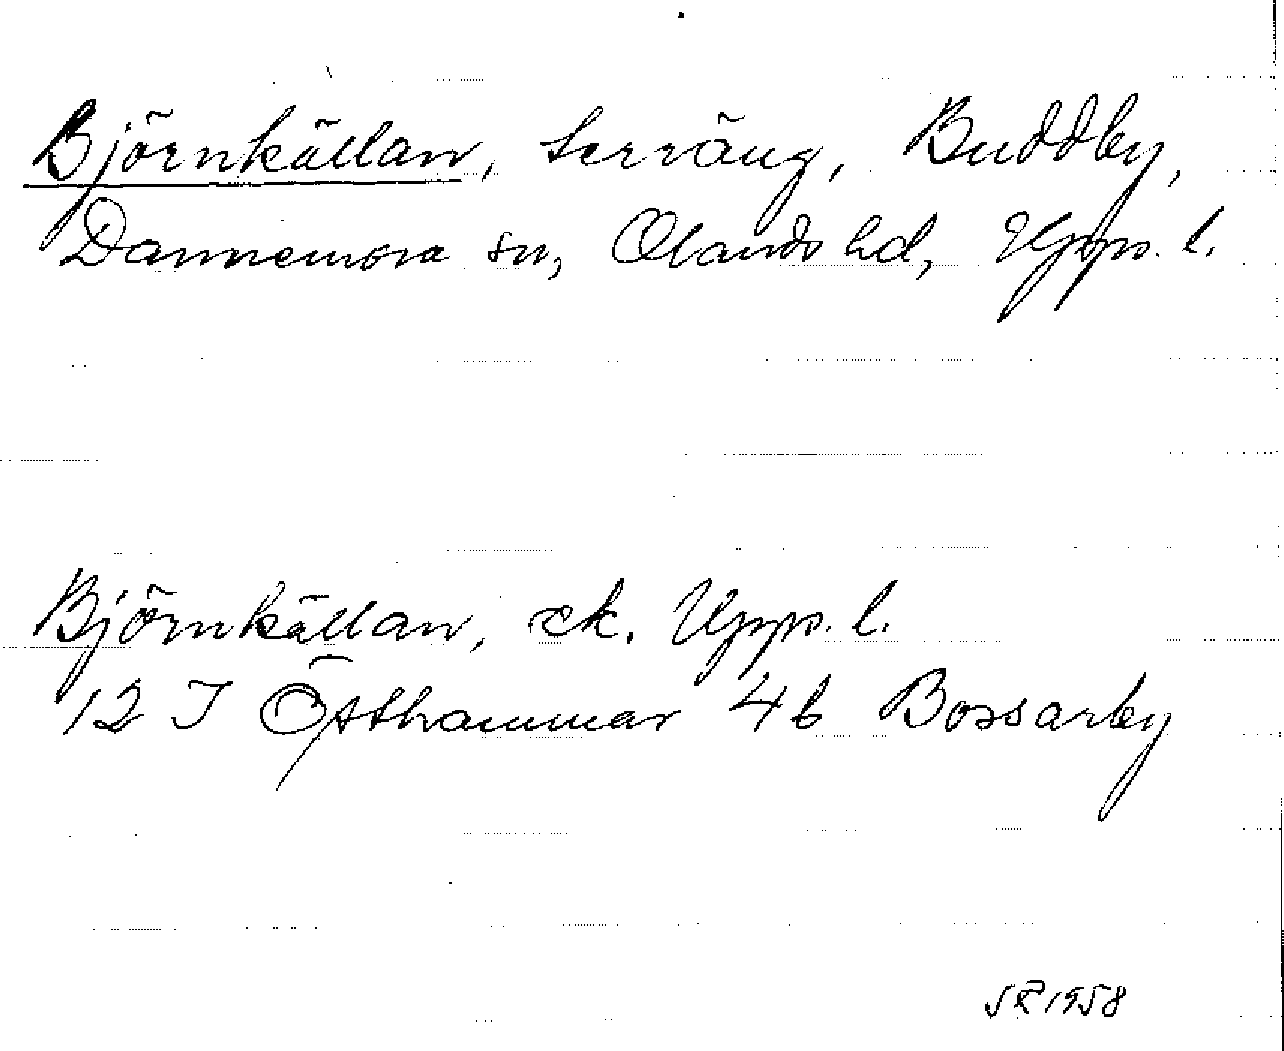 Björnkällan, terräng, Buddby,
Dannemora sn, Olands hd, Upps. l.
Björnkällan, ek. Upps. l.
12 I Östhammar 4b Bossarby
1958